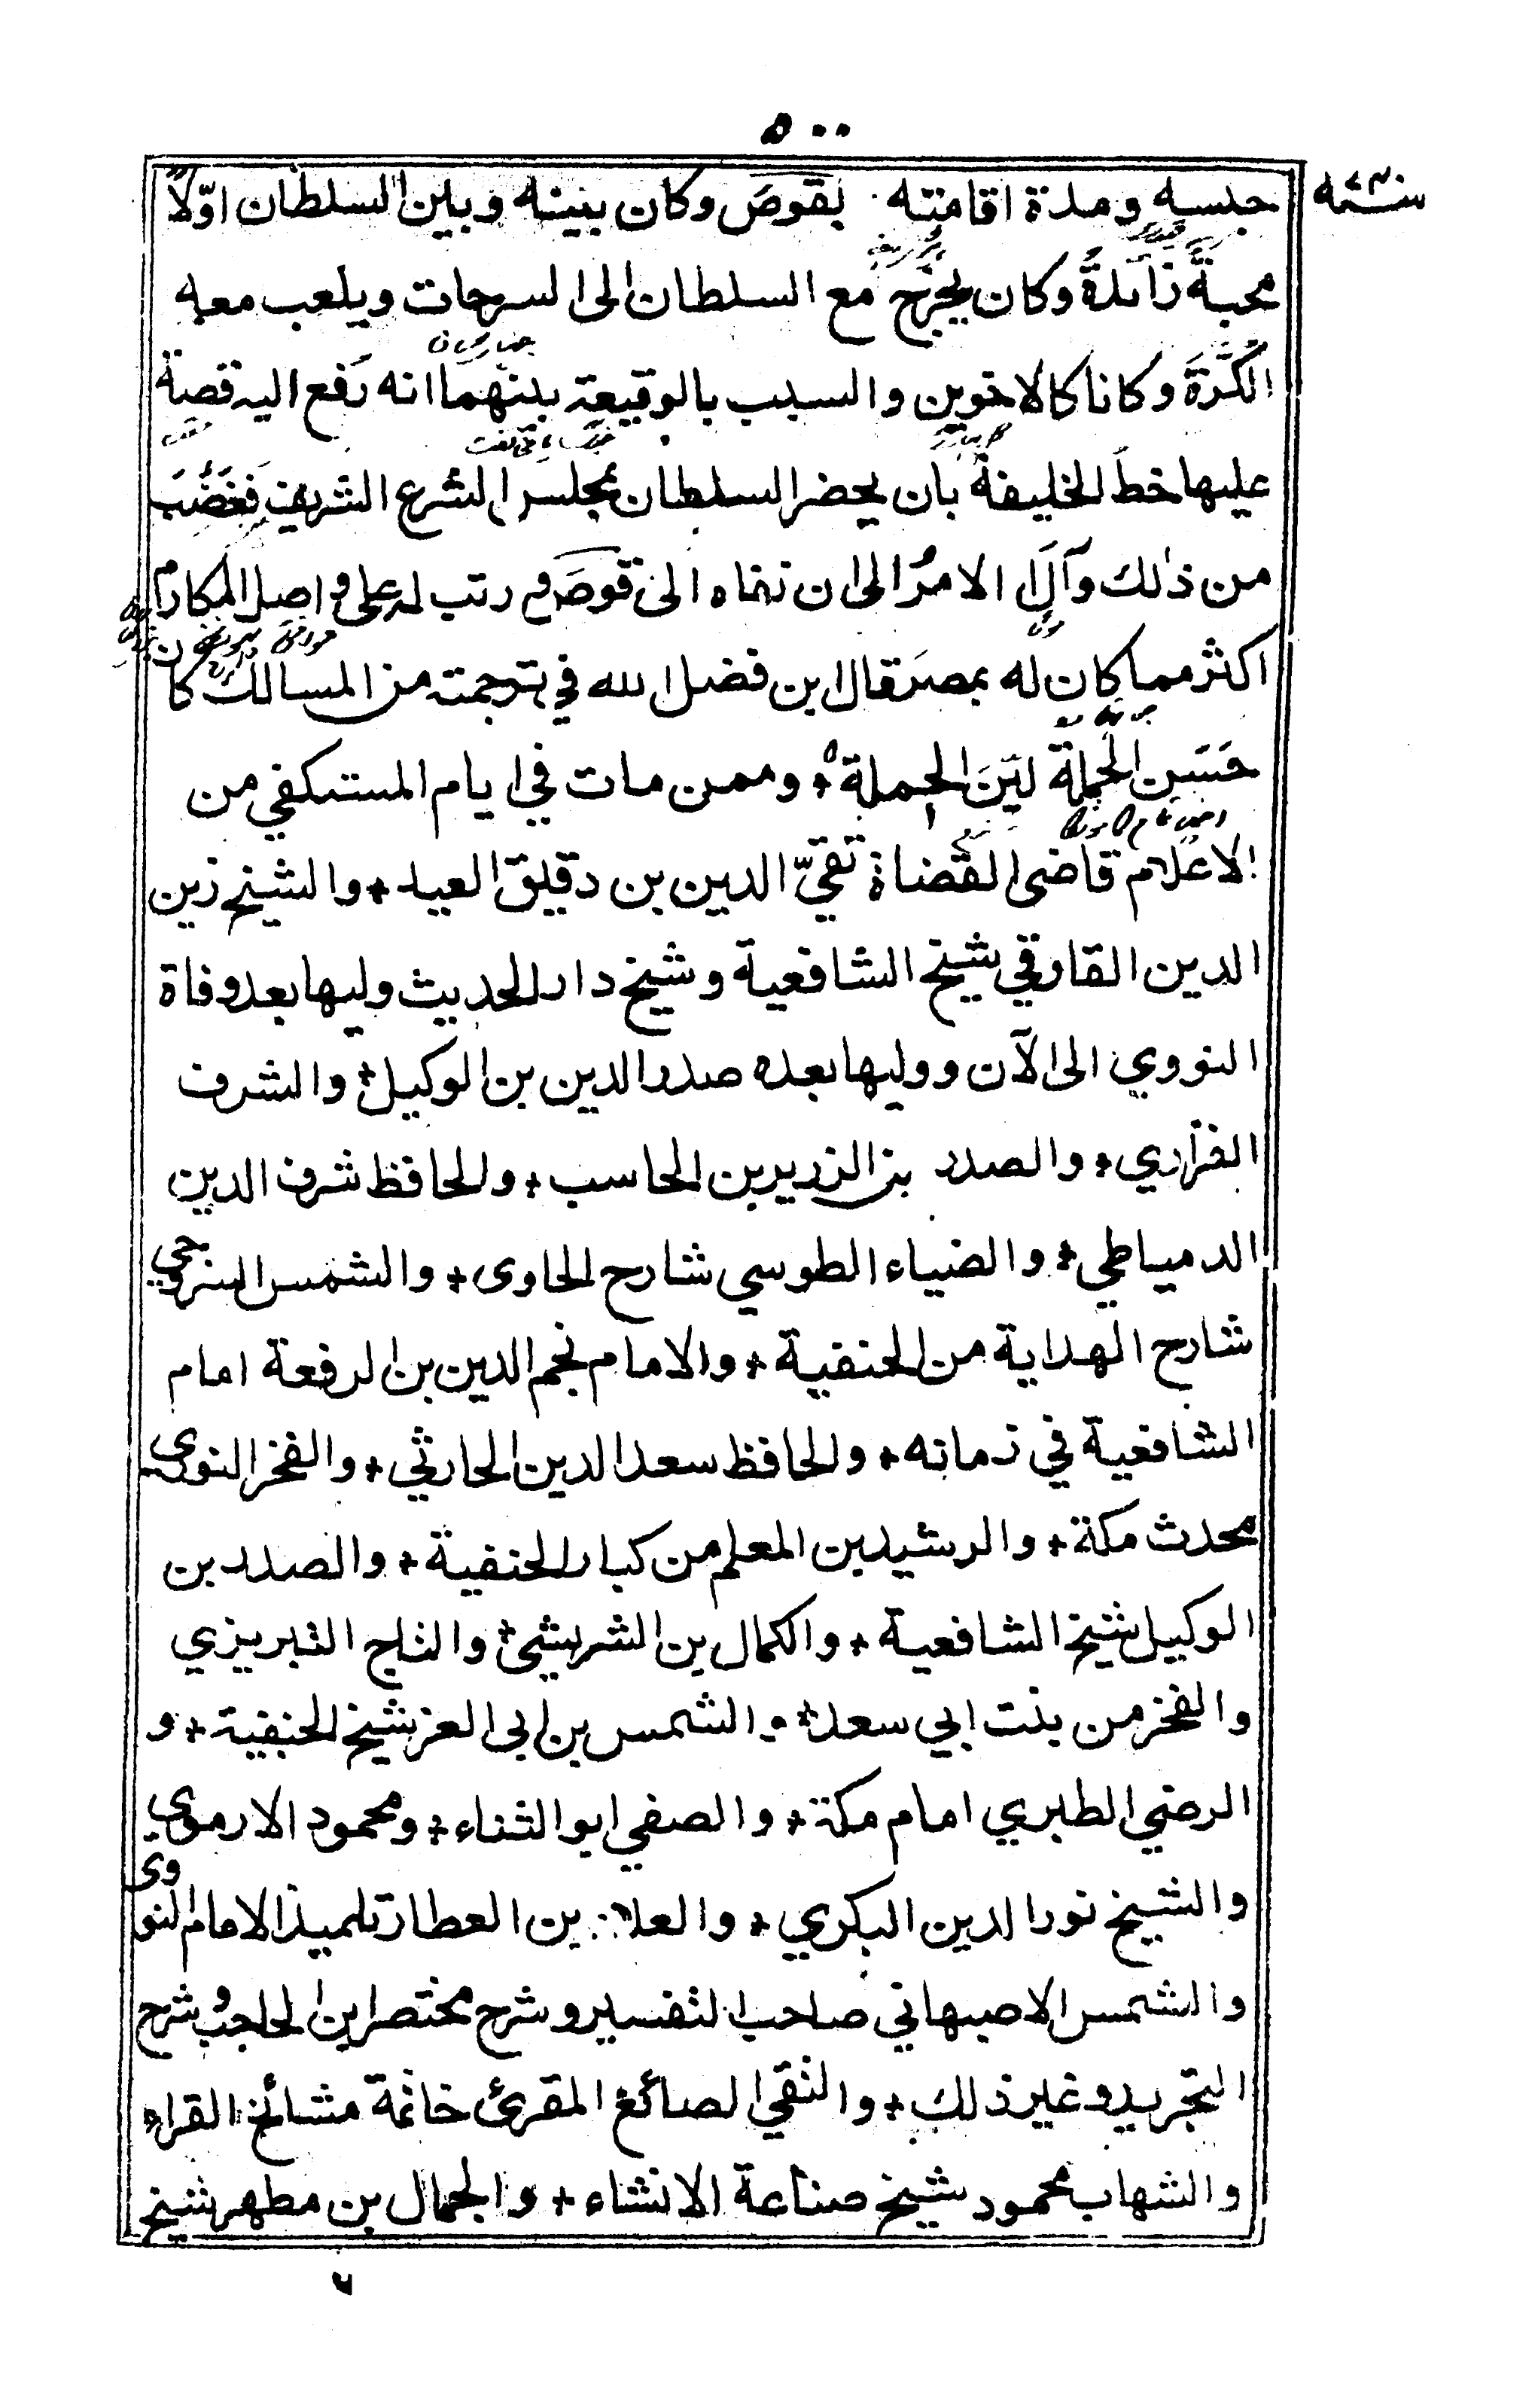 ٥٠٠
حبسه ومدة اقامته بقوصَ وكان بينه وبين السلطان اوّلاً
محبةٌ زائدةٌ وكان يخرج مع السلطان الى السرحات ويلعب معه
الكُرَةَ وكانا كالاخوين والسبب بالوقيعة بينهما انه رَفع اليه قصة
عليها خطَّ الخليفة بان يحضر السلطان بمجلس الشرع الشريف فغَضَبَ
من ذٰلك وآلَ الامرُ الى ان نفاه الى قوصَ ورتب له على واصل المكارم
اكثر مما كان له بمصرَ قال ابن فضل الله في ترجمته من المسالك كان
حَسَن الجملة ليّن الحملة + وممن مات في ايام المستكفي من
الاعلام قاضى القضاة تقيّ الدين بن دقيق العيد + والشيخ زين
الدين الفارقي شيخ الشافعية وشيخ دار الحديث وليها بعد وفاة
النووي الى الآن ووليها بعده صدر الدين بن الوكيل + والشرف
الفزاري + والصدر بن الزرير بن الحاسب + والحافظ شرف الدين
الدمياطي + والضياء الطوسي شارح الحاوى + والشمس السروجي
شارح الهداية من الحنفية + والامام نجم الدين بن الرفعة امام
الشافعية في زمانه + والحافظ سعد الدين الحارثي + والفخر النوري
محدث مكة + والرشيد بن المعلم من كبار الحنفية + والصدر بن
الوكيل شيخ الشافعية + والكمال بن الشريشي + والتاج التبريزي
والفخر من بنت ابي سعد + والشمس بن ابى العز شيخ الحنفية + و
الرضي الطبري امام مكة + والصفي ابو الثناء + ومحمود الارموي
والشيخ نور الدين البكري + والعلاء بن العطار تلميذ الامام النووى
والشمس الاصبهاني صاحب التفسير وشرح مختصر ابن الحاجب وشرح
التجريد وغير ذلك + والتقي الصائغ المقرئ خاتمة مشائخ القراء
والشهاب محمود شيخ صناعة الانشاء + والجمال بن مطهر شيخ